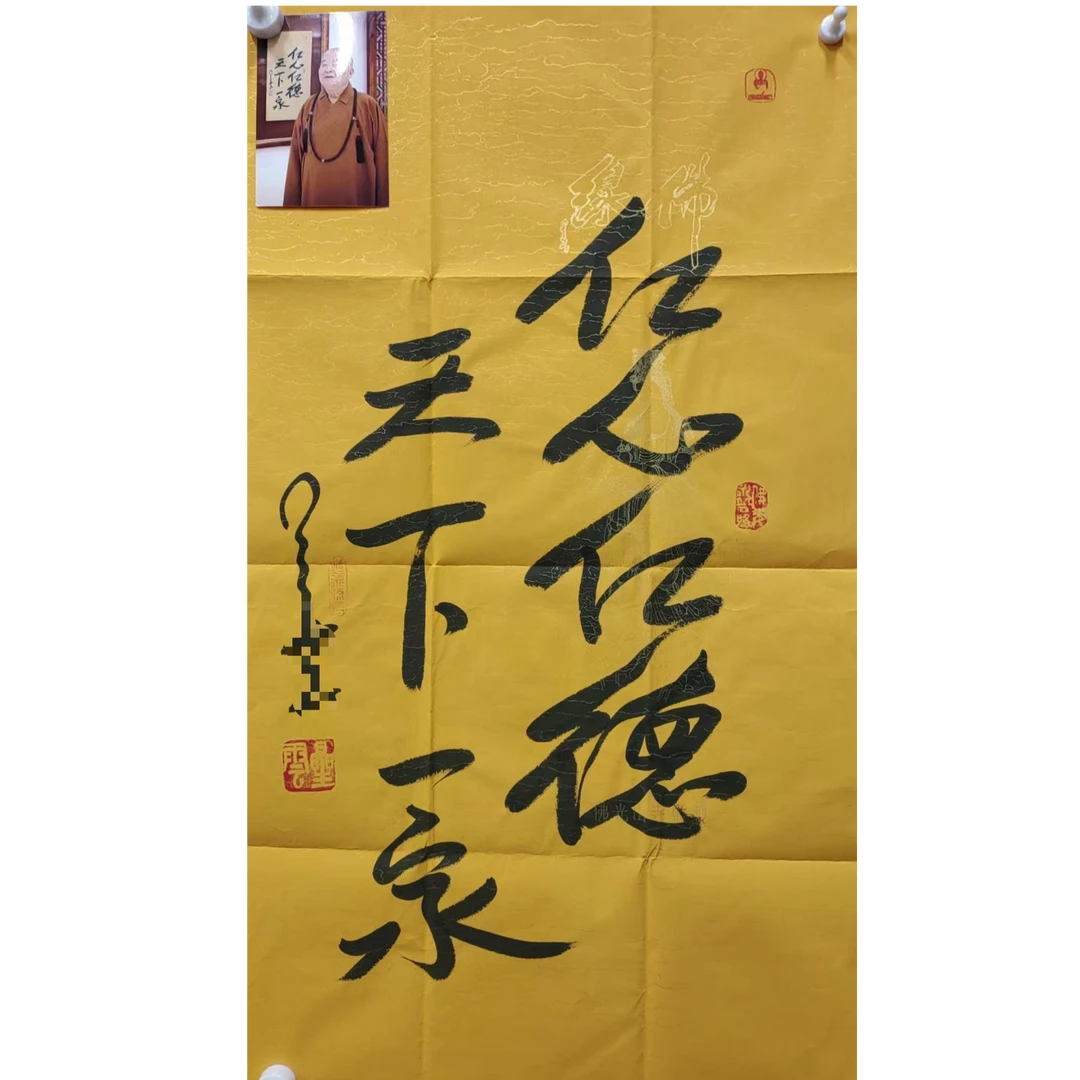 佛緣
仁心仁德
天下一家
佛光山
星雲
仁心仁德
天下一家